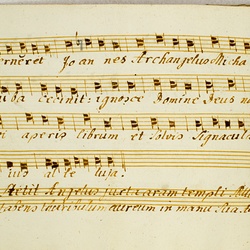 cerneret Joannes Archangelus Micha
tuba cecinit: ignosce Domine Deus n
aperis librum et solvis signacul
alleluja.
Stetit Angelus juxta aram templi
habens thuribulum aureum in manu sua